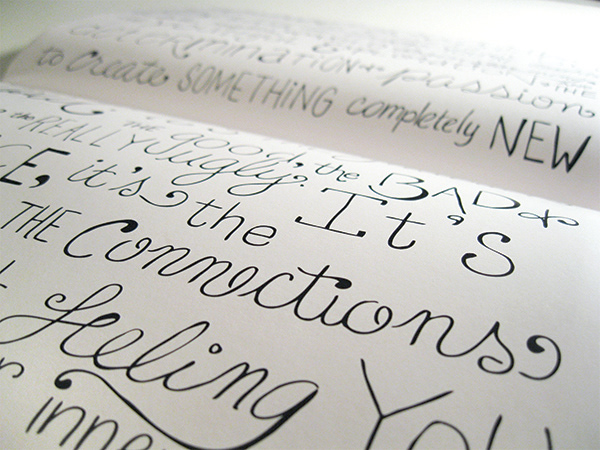 determination passion
to create SOMETHING completely NEW
the good, the BAD &
the REALLY ugly. It's
E, it's the
THE Connections,
feeling You
inne